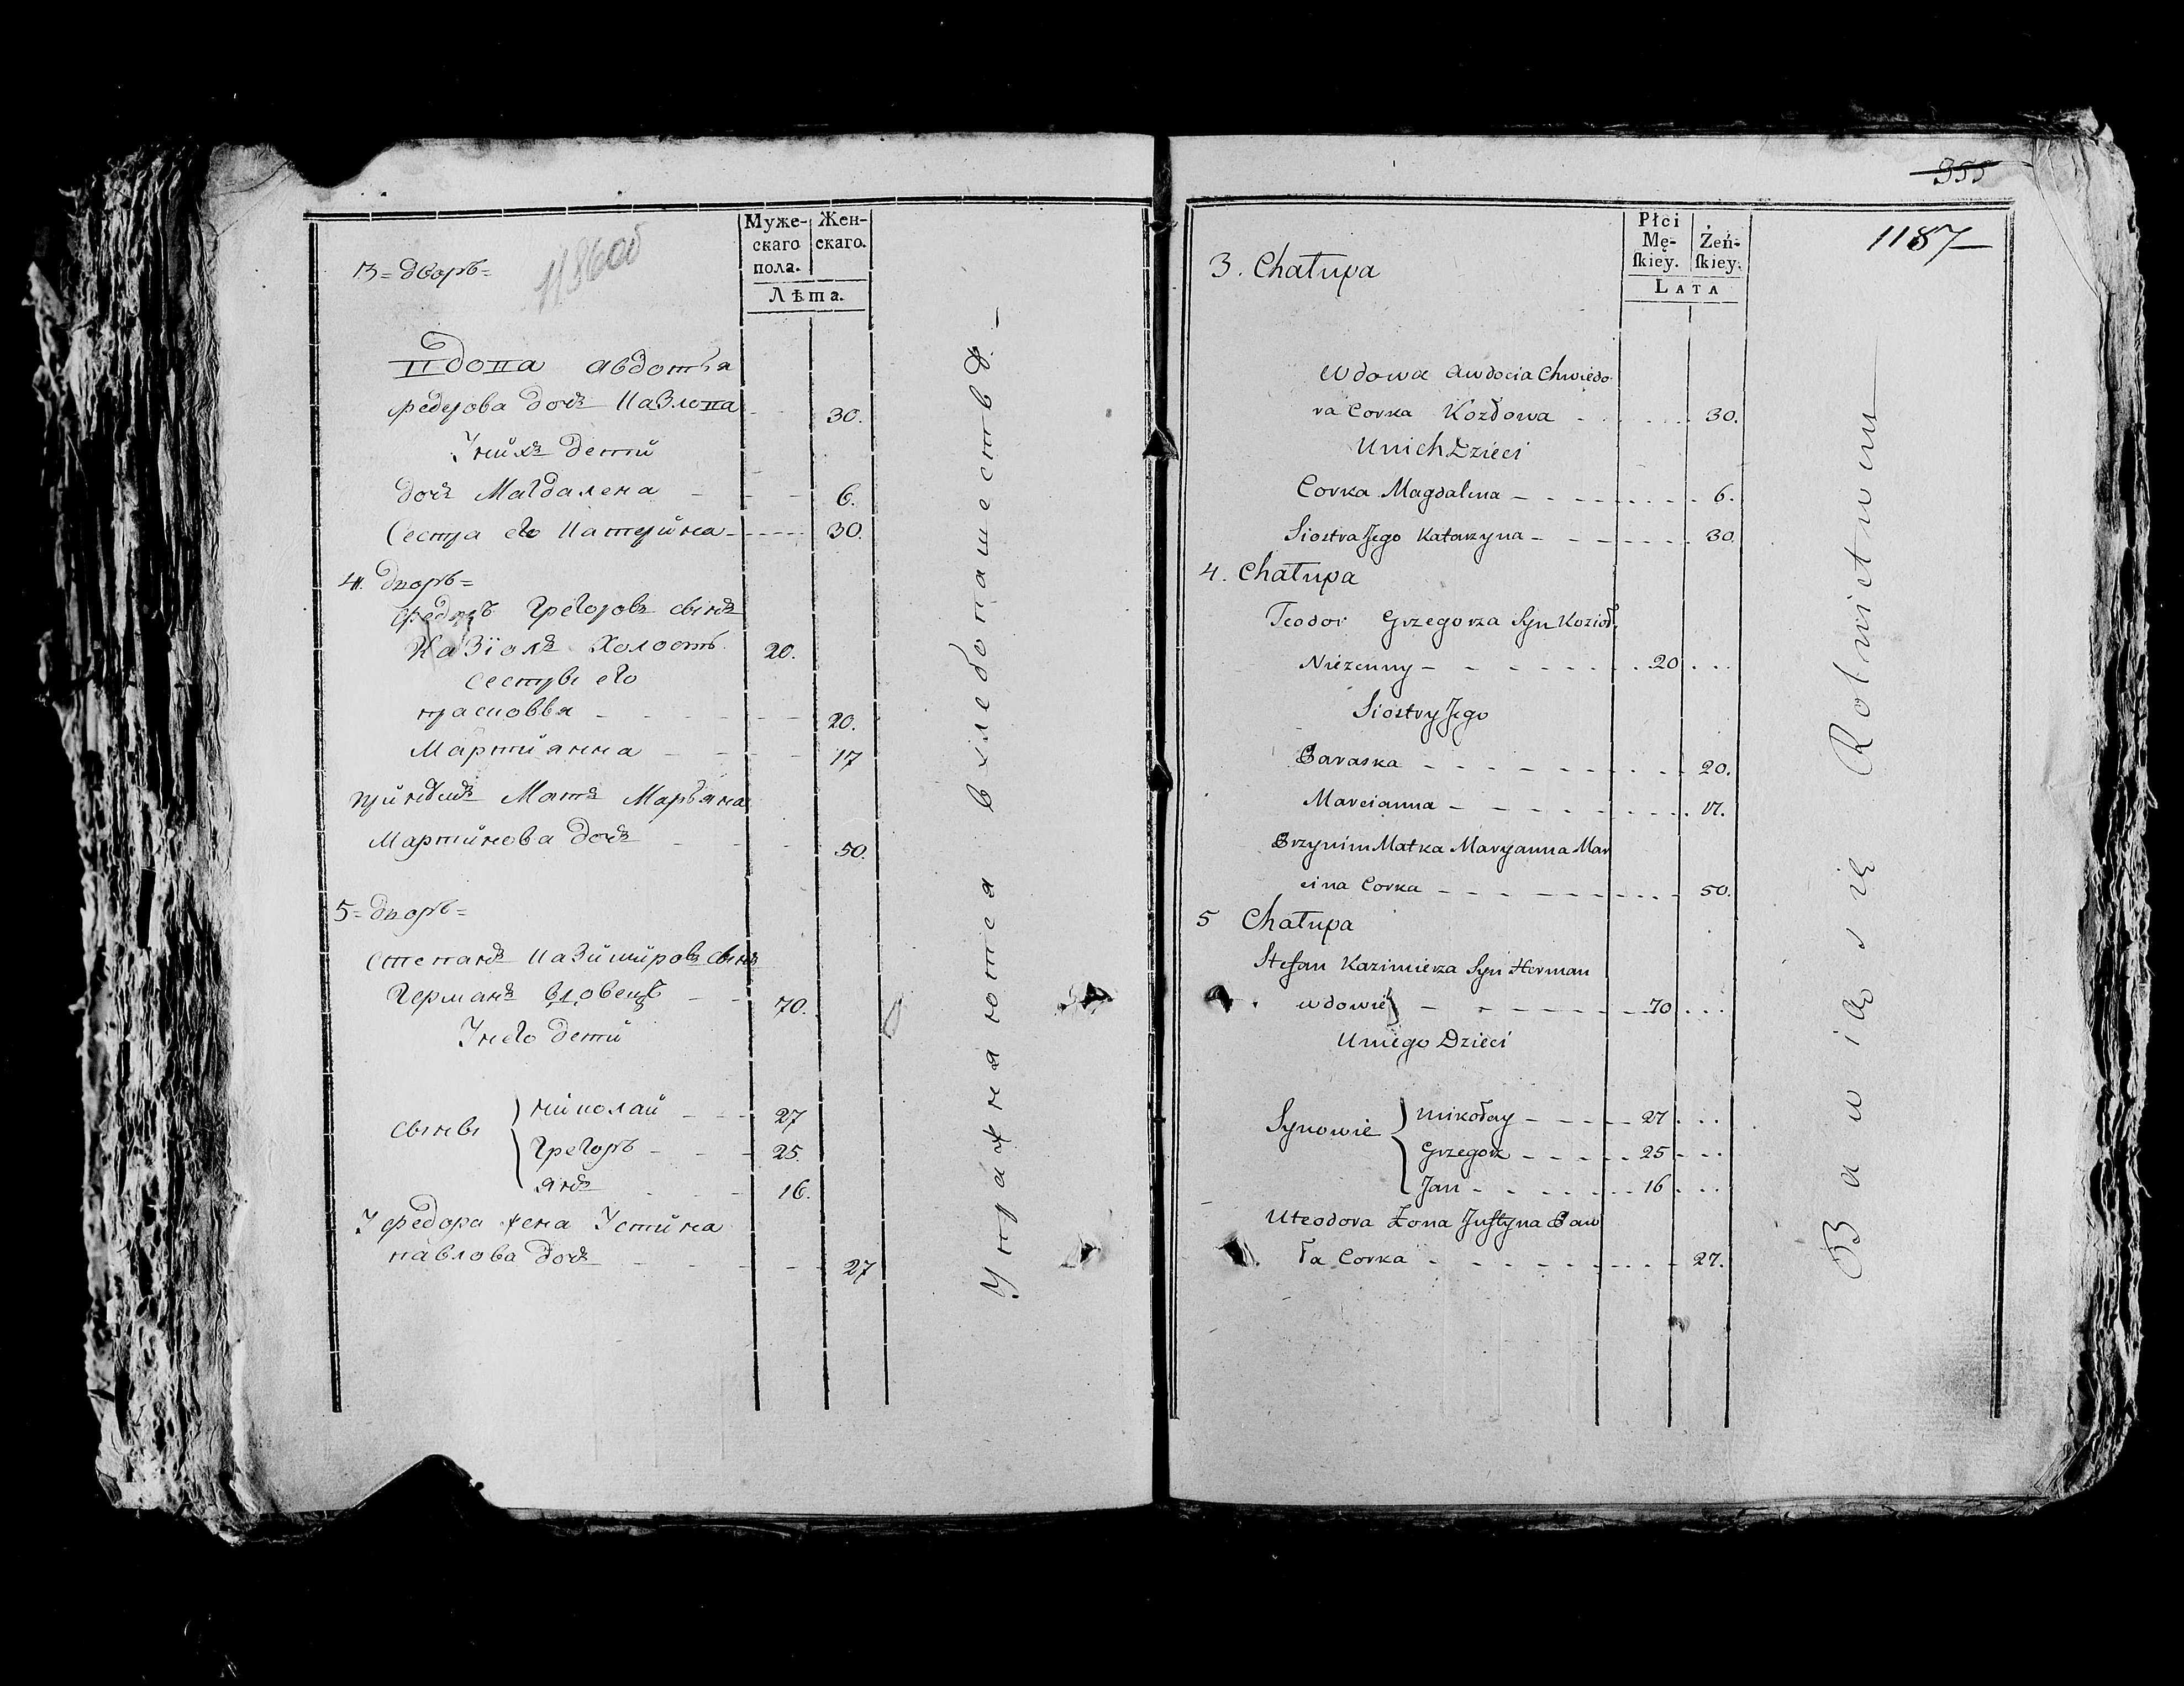 Муже-
скаго
пола.
Жен-
скаго.
Лѣта.
3 = дворъ =
1186об
Вдова Авдотья
федерова дочъ Казлова 30.
Унихъ дети
дочъ Магдалена 6.
Сестра его Катерина 30.
4. дворъ =
Федоръ Грегоровъ сынъ
Казіолъ Холостъ 20.
сестры его
прасковья 20.
Мартианна 17
принемъ Матъ Марьяна
Мартинова дочъ 50.
5 = дворъ =
Степанъ Казимировъ сынъ
Германъ вдовецъ 70.
Унего дети
сыны
николай 27
Грегоръ 25.
янъ 16.
У федора жена Устина
павлова дочъ 27
Упражняются в хлебопашествѣ. —
355
1187
Płci
Mę-
ſkiey.
Żeń-
ſkiey.
LATA
3. Chałupa
Wdowa Awdocia Chwiedo
ra Corka Kozłowa 30.
Unich Dzieci
Corka Magdalena 6.
Siostra Jego Katarzyna 30.
4. Chałupa
Teodor Grzegorza Syn Kozioł,
Niezenny 20
Siostry Jego
Paraska 20.
Marcianna 17.
Przynim Matka Maryanna Mar
cina Corka 50.
5 Chałupa
Stefan Kazimierza Syn Herman
wdowiec 70
Uniego Dzieci
Synowie
Mikołay 27
Grzegorz 25
Jan 16
Uteodora Żona Juſtyna Paw
ła Corka 27.
Bawią się Rolnictwem